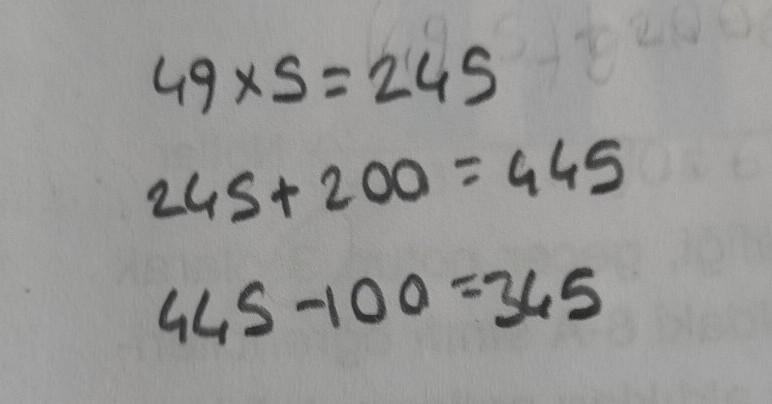 49×5=245
245+200=445
445-100=345